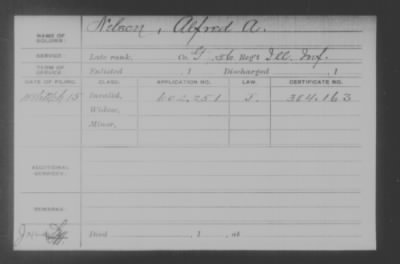 NAME OF SOLDIER: Nelson, Alfred A.
SERVICE: Late rank, Co. G, 56 Reg't Ill. Inf.
TERM OF SERVICE Enlisted , 1 Discharged , 1
DATE OF FILING. CLASS. APPLICATION NO. LAW. CERTIFICATE NO.
15 Invalid, 602,251 J. 384,163
Widow,
Minor,
ADDITIONAL SERVICES:
REMARKS:
Died , 1 , at